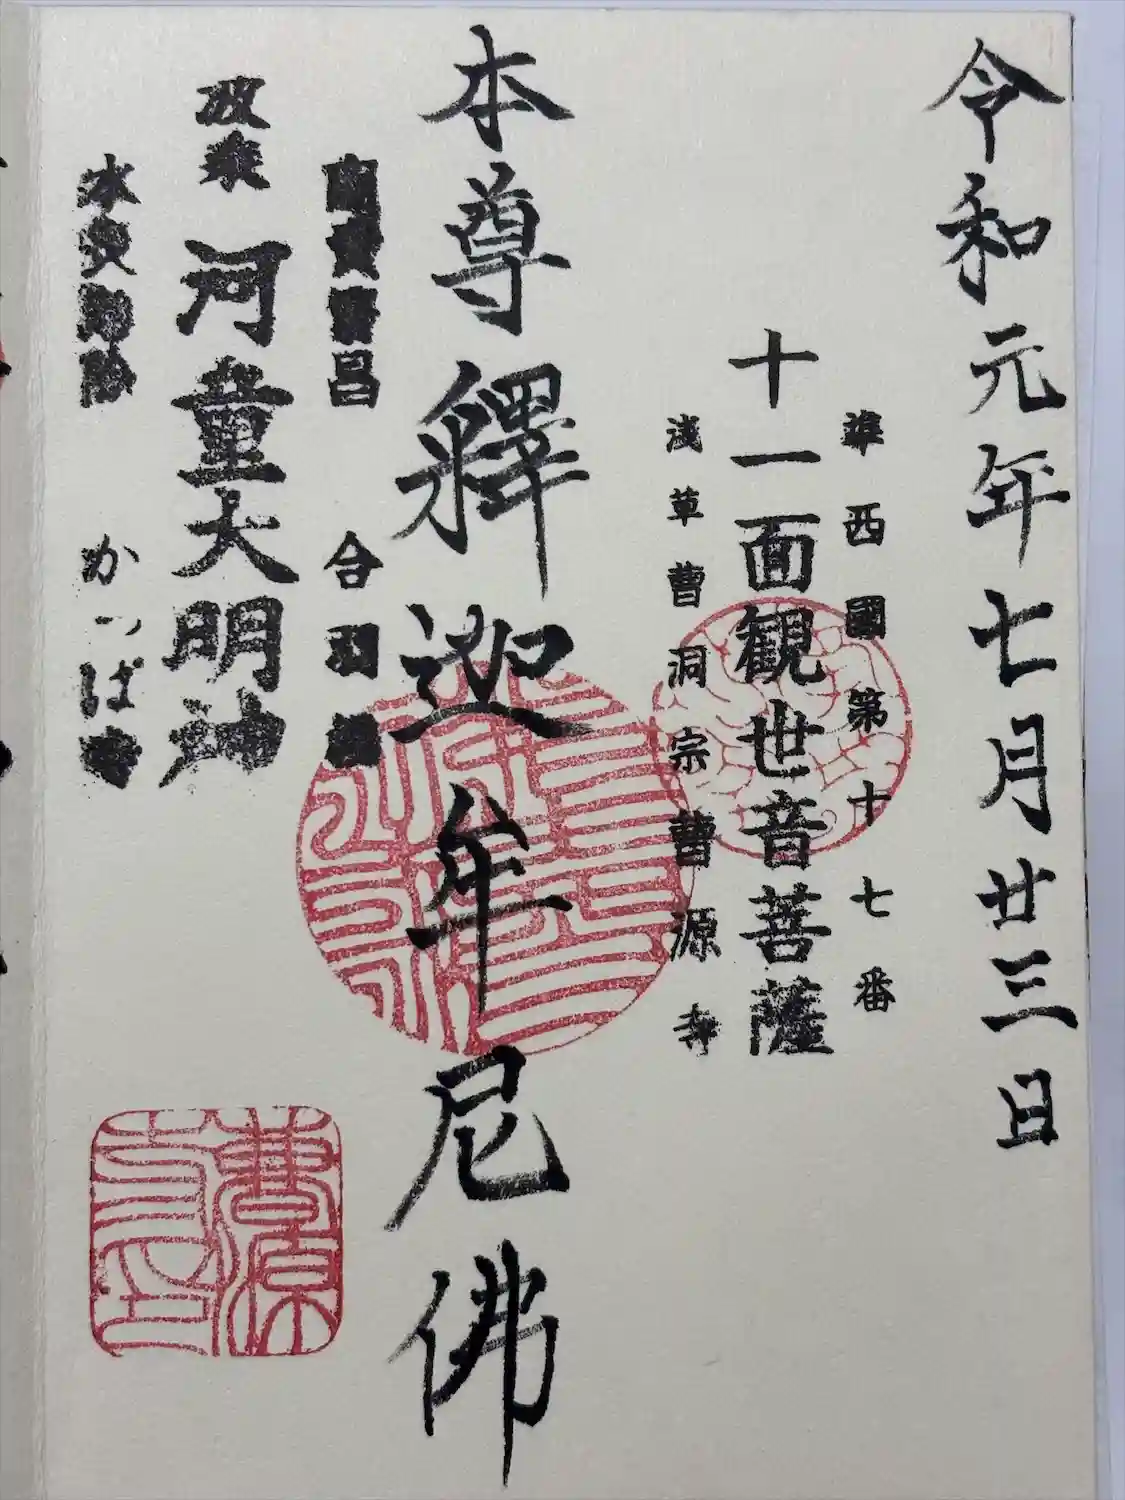 令和元年七月廿三日
準西國第十七番
十一面観世音菩薩
浅草曹洞宗曹源寺
本尊釋迦牟尼佛
商賣繁昌 合羽
河童大明神
かっぱ寺
曹源寺印